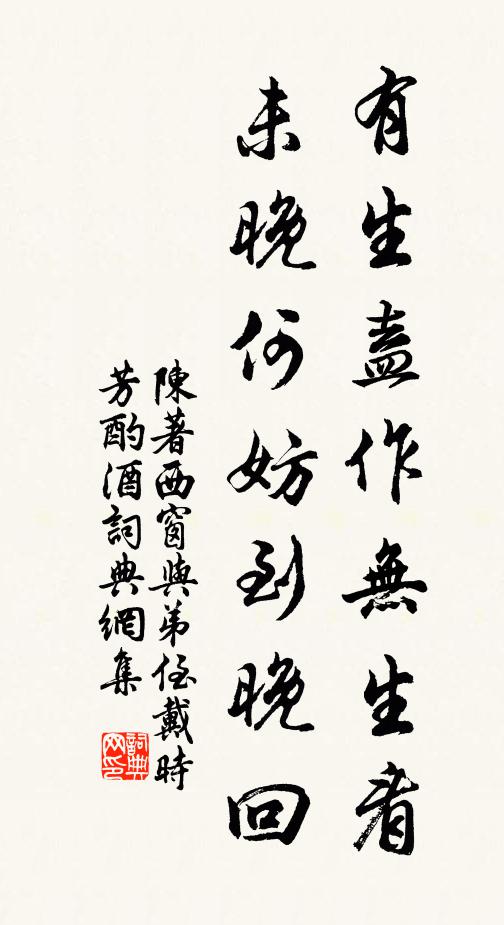 有生盍作無生看
未晚何妨到晚回
陳著西窗與弟侄戴時
芳酌酒詞典網集
詞典网印